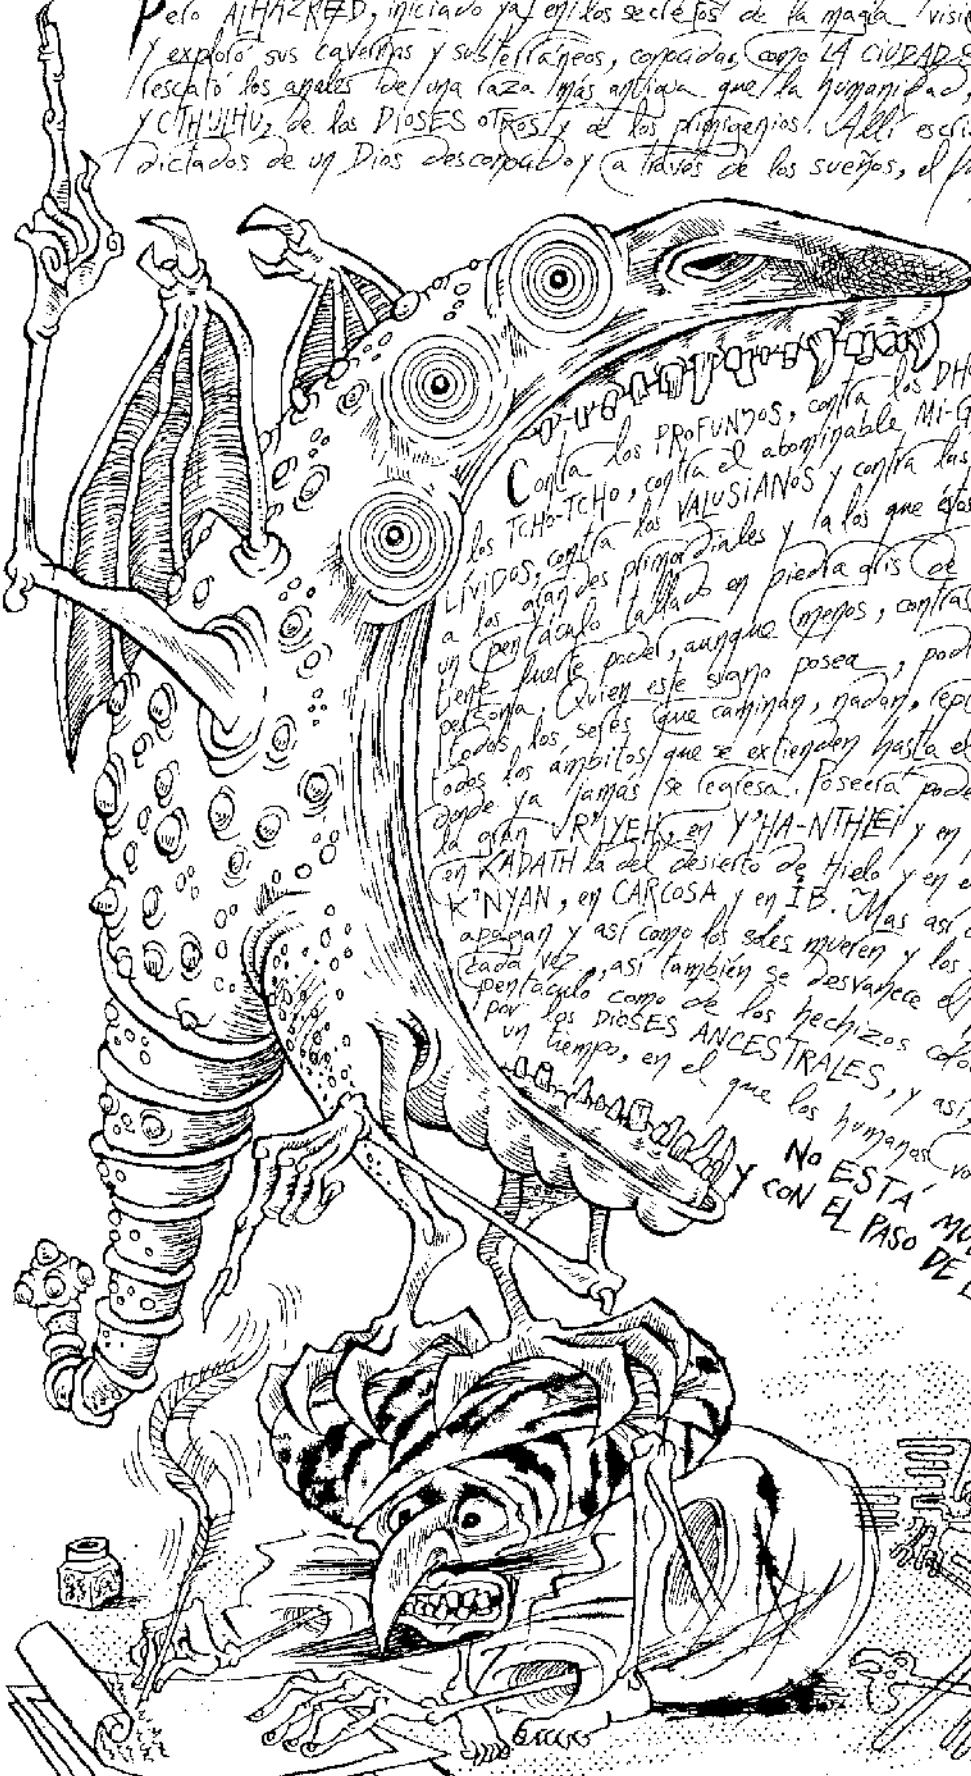 Pero ALHAZRED, iniciado ya en los secretos de la magia
y exploró sus cavernas y subterráneos, conocidas como LA CIUDAD
rescató los anales de una raza más antigua que la humanidad,
y CTHULHU, de los DIOSES OTROS y de los primigenios. Allí
dictados de un Dios desconocido y a través de los sueños, el
Contra los PROFUNDOS, contra los
los TCHO-TCHO, contra el abominable MI-G
LÍVIDOS, contra los VALUSIANOS y contra las
a los grandes primordiales y a los que éstos
un pentáculo tallado en piedra gris de
tiene fuerte poder, aunque menos, contra
persona. Quien este signo posea, pod
todos los seres que caminan, nadan,
todos los ámbitos que se extienden hasta
donde ya jamás se regresa. Poseerá pode
la gran R'LYEH, en Y'HA-NTHLEI y en
en KADATH la del desierto de Hielo y en
K'NYAN, en CARCOSA y en IB. Mas así
apagan y así como los soles mueren y los
cada vez, así también se desvanece el
pentáculo como de los hechizos
por los DIOSES ANCESTRALES, y así,
un tiempo, en el que los humanos
NO ESTÁ MU
Y CON EL PASO DE